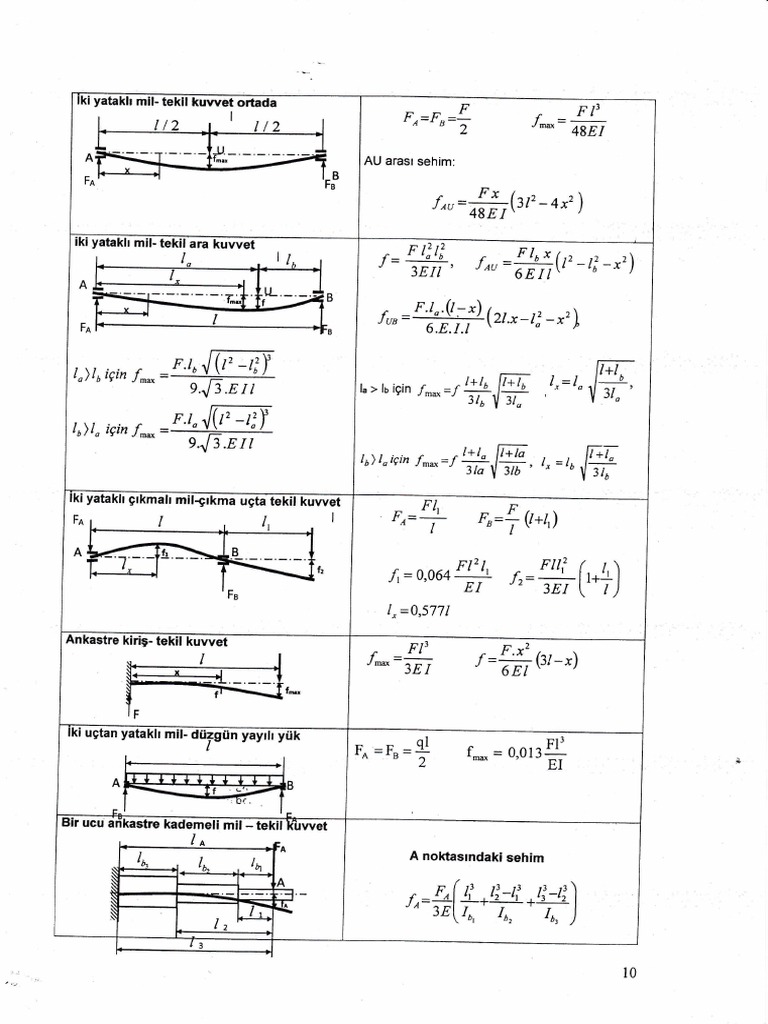 İki yataklı mil- tekil kuvvet ortada
l
l / 2 l / 2
A U f_max B
x
F_A F_B
F_A=F_B=F/2 f_max=F l³/48EI
AU arası sehim:
f_AU=F x/48EI(3l²−4x²)
iki yataklı mil- tekil ara kuvvet
l_a l l_b
l_x
A U B
f_max f
x
l
F_A F_B
f=F l_a² l_b²/3EIl, f_AU=F l_b x/6EIl(l²−l_b²−x²)
f_UB=F.l_a.(l−x)/6.E.I.l(2l.x−l_a²−x²),
l_a⟩l_b için f_max=F.l_b √(l²−l_b²)³/9.√3.EIl
l_b⟩l_a için f_max=F.l_a √(l²−l_a²)³/9.√3.EIl
la > lb için f_max=f l+l_b/3l_b √l+l_b/3l_a l_x=l_a √l+l_b/3l_a,
l_b⟩l_a için f_max=f l+l_a/3la √l+la/3lb, l_x=l_b √l+l_a/3l_b
İki yataklı çıkmalı mil-çıkma uçta tekil kuvvet
F_A l l_1 l
A f_1 B f_2
l_x
F_B
F_A=Fl_1/l F_B=F/l(l+l_1)
f_1=0,064 Fl²l_1/EI f_2=Fll_1²/3EI(1+l_1/l)
l_x=0,577l
Ankastre kiriş- tekil kuvvet
l
x
f f_max
F
f_max=Fl³/3EI f=F.x²/6El(3l−x)
İki uçtan yataklı mil- düzgün yayılı yük
l
A f B
F_B F_A
F_A=F_B=ql/2 f_max = 0,013 Fl³/EI
Bir ucu ankastre kademeli mil – tekil kuvvet
l_A F_A
l_b3 l_b2 l_b1
A
f_A
l_1
l_2
l_3
A noktasındaki sehim
f_A=F_A/3E(l_1³/I_b1+l_2³−l_1³/I_b2+l_3³−l_2³/I_b3)
10